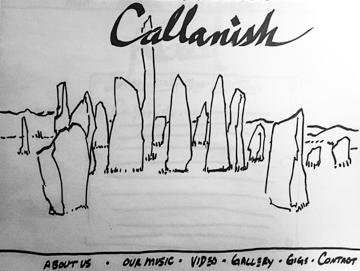 Callanish
ABOUT US · OUR MUSIC · VIDEO · GALLERY · GIGS · CONTACT